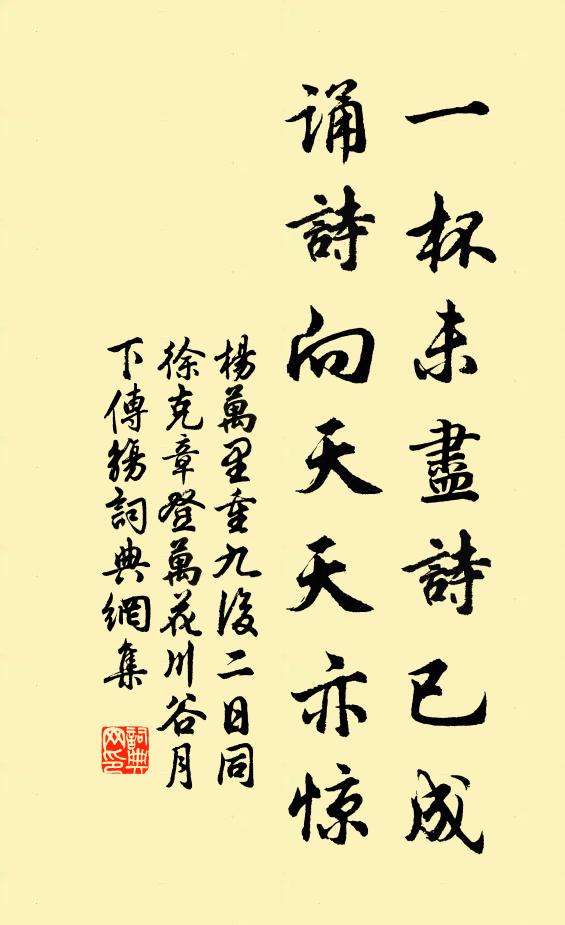 一杯未盡詩已成
誦詩向天天亦惊
楊萬里重九後二日同
徐克章登萬花川谷月
下傳觴詞典網集
詞典网印